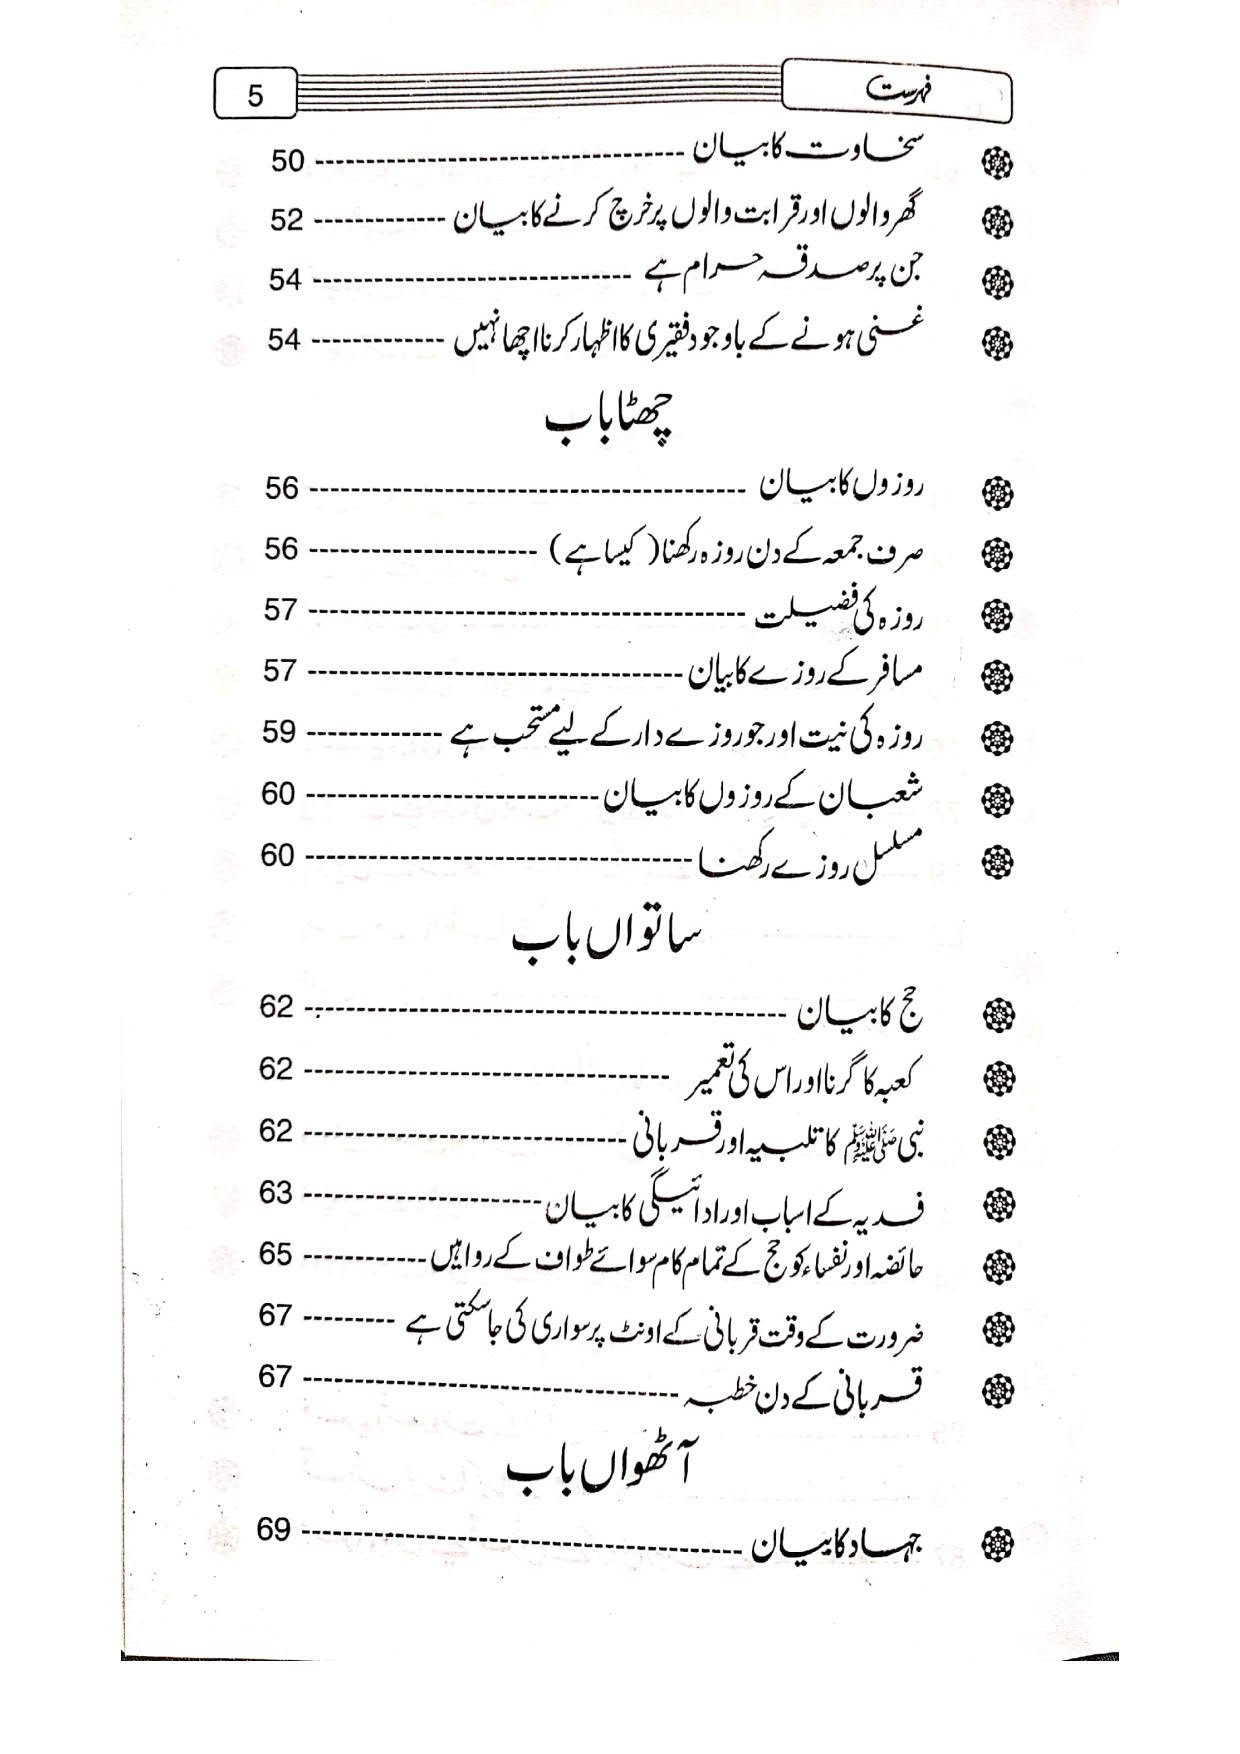 فہرست 5
سخاوت کا بیان ---------------------------------- 50
گھر والوں اور قرابت والوں پر خرچ کرنے کا بیان ------------- 52
جن پر صدقہ حرام ہے ------------------------------ 54
غنی ہونے کے باوجود فقیری کا اظہار کرنا اچھا نہیں ------------- 54
چھٹا باب
روزوں کا بیان ------------------------------------------ 56
صرف جمعہ کے دن روزہ رکھنا (کیسا ہے) ---------------------- 56
روزہ کی فضیلت ------------------------------------------ 57
مسافر کے روزے کا بیان ------------------------------------ 57
روزہ کی نیت اور جو روزے دار کے لیے مستحب ہے ------------- 59
شعبان کے روزوں کا بیان ---------------------------- 60
مسلسل روزے رکھنا ------------------------------------- 60
ساتواں باب
حج کا بیان ---------------------------------------------- 62
کعبہ کا گرنا اور اس کی تعمیر ----------------------------------- 62
نبی ﷺ کا تلبیہ اور قربانی ------------------------------- 62
فدیہ کے اسباب اور ادائیگی کا بیان ----------------------- 63
حائضہ اور نفساء کو حج کے تمام کام سوائے طواف کے روا ہیں ------------ 65
ضرورت کے وقت قربانی کے اونٹ پر سواری کی جا سکتی ہے --------- 67
قربانی کے دن خطبہ ------------------------------------ 67
آٹھواں باب
جہاد کا بیان ------------------------------------------ 69